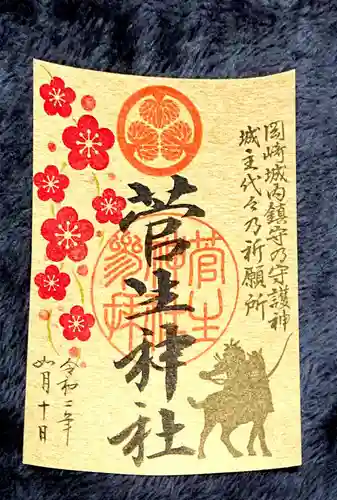 岡崎城内鎮守乃守護神
城主代々乃祈願所
菅生神社
令和二年
如月十日